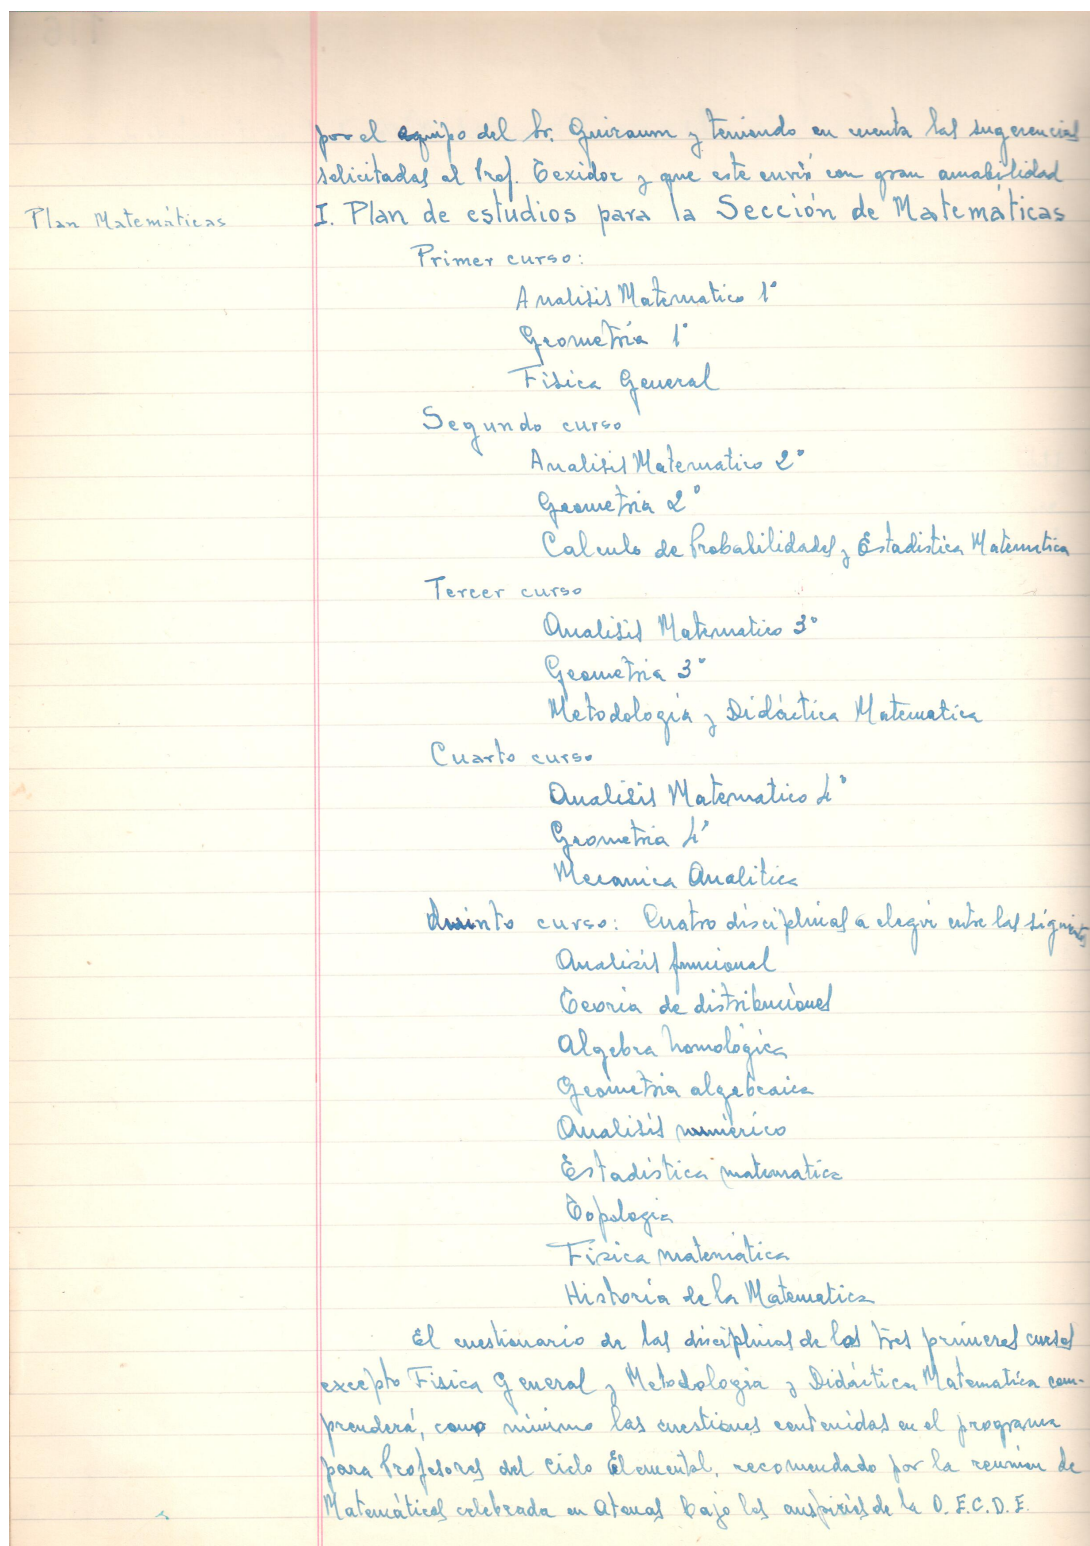 por el equipo del Sr. Guiraum y teniendo en cuenta las sugerencias
solicitadas al Prof. Texidor y que este envió con gran amabilidad
Plan Matemáticas
I. Plan de estudios para la Sección de Matemáticas
Primer curso:
Analisis Matematico 1º
Geometría 1º
Fisica General
Segundo curso
Analisis Matematico 2º
Geometria 2º
Calculo de Probabilidades y Estadistica Matematica
Tercer curso
Analisis Matematico 3º
Geometria 3º
Metodologia y Didáctica Matematica
Cuarto curso
Analisis Matematico 4º
Geometria 4º
Mecanica Analitica
Quinto curso: Cuatro disciplinas a elegir entre las siguientes
Analisis funcional
Teoria de distribuciones
Algebra homológica
Geometria algebraica
Analisis numérico
Estadistica matematica
Topologia
Fisica matemática
Historia de la Matematica
El cuestionario de las disciplinas de los tres primeros cursos
excepto Fisica General y Metodologia y Didáctica Matematica com-
prenderá, como minimo las cuestiones contenidas en el programa
para Profesores del Ciclo Elemental, recomendado por la reunion de
Matemáticos celebrada en Atenas bajo los auspicios de la O.E.C.D.E.